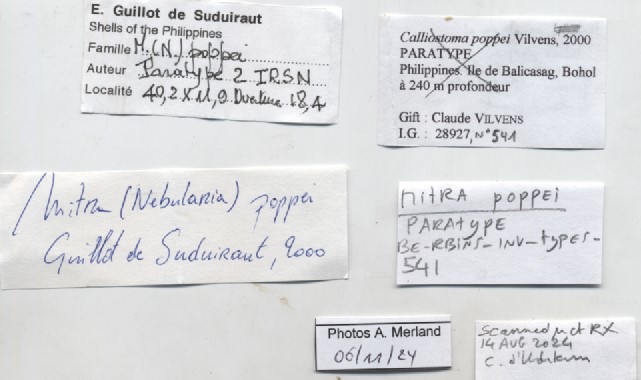 E. Guillot de Suduiraut
Shells of the Philippines
Famille M.(N) poppei
Auteur Paratype 2 IRSN
Localité 40,2 x 11,9 Ouverture 18,4
Calliostoma poppei Vilvens, 2000
PARATYPE
Philippines. Ile de Balicasag, Bohol
à 240 m profondeur
Gift : Claude VILVENS
I.G. : 28927, N° 541
Mitra (Nebularia) poppei
Guillot de Suduiraut, 2000
MITRA poppei
PARATYPE
BE-RBINS-INV-types-
541
Photos A. Merland
06/11/24
Scanned μct RX
14 AUG 2024
C. d'Udekem